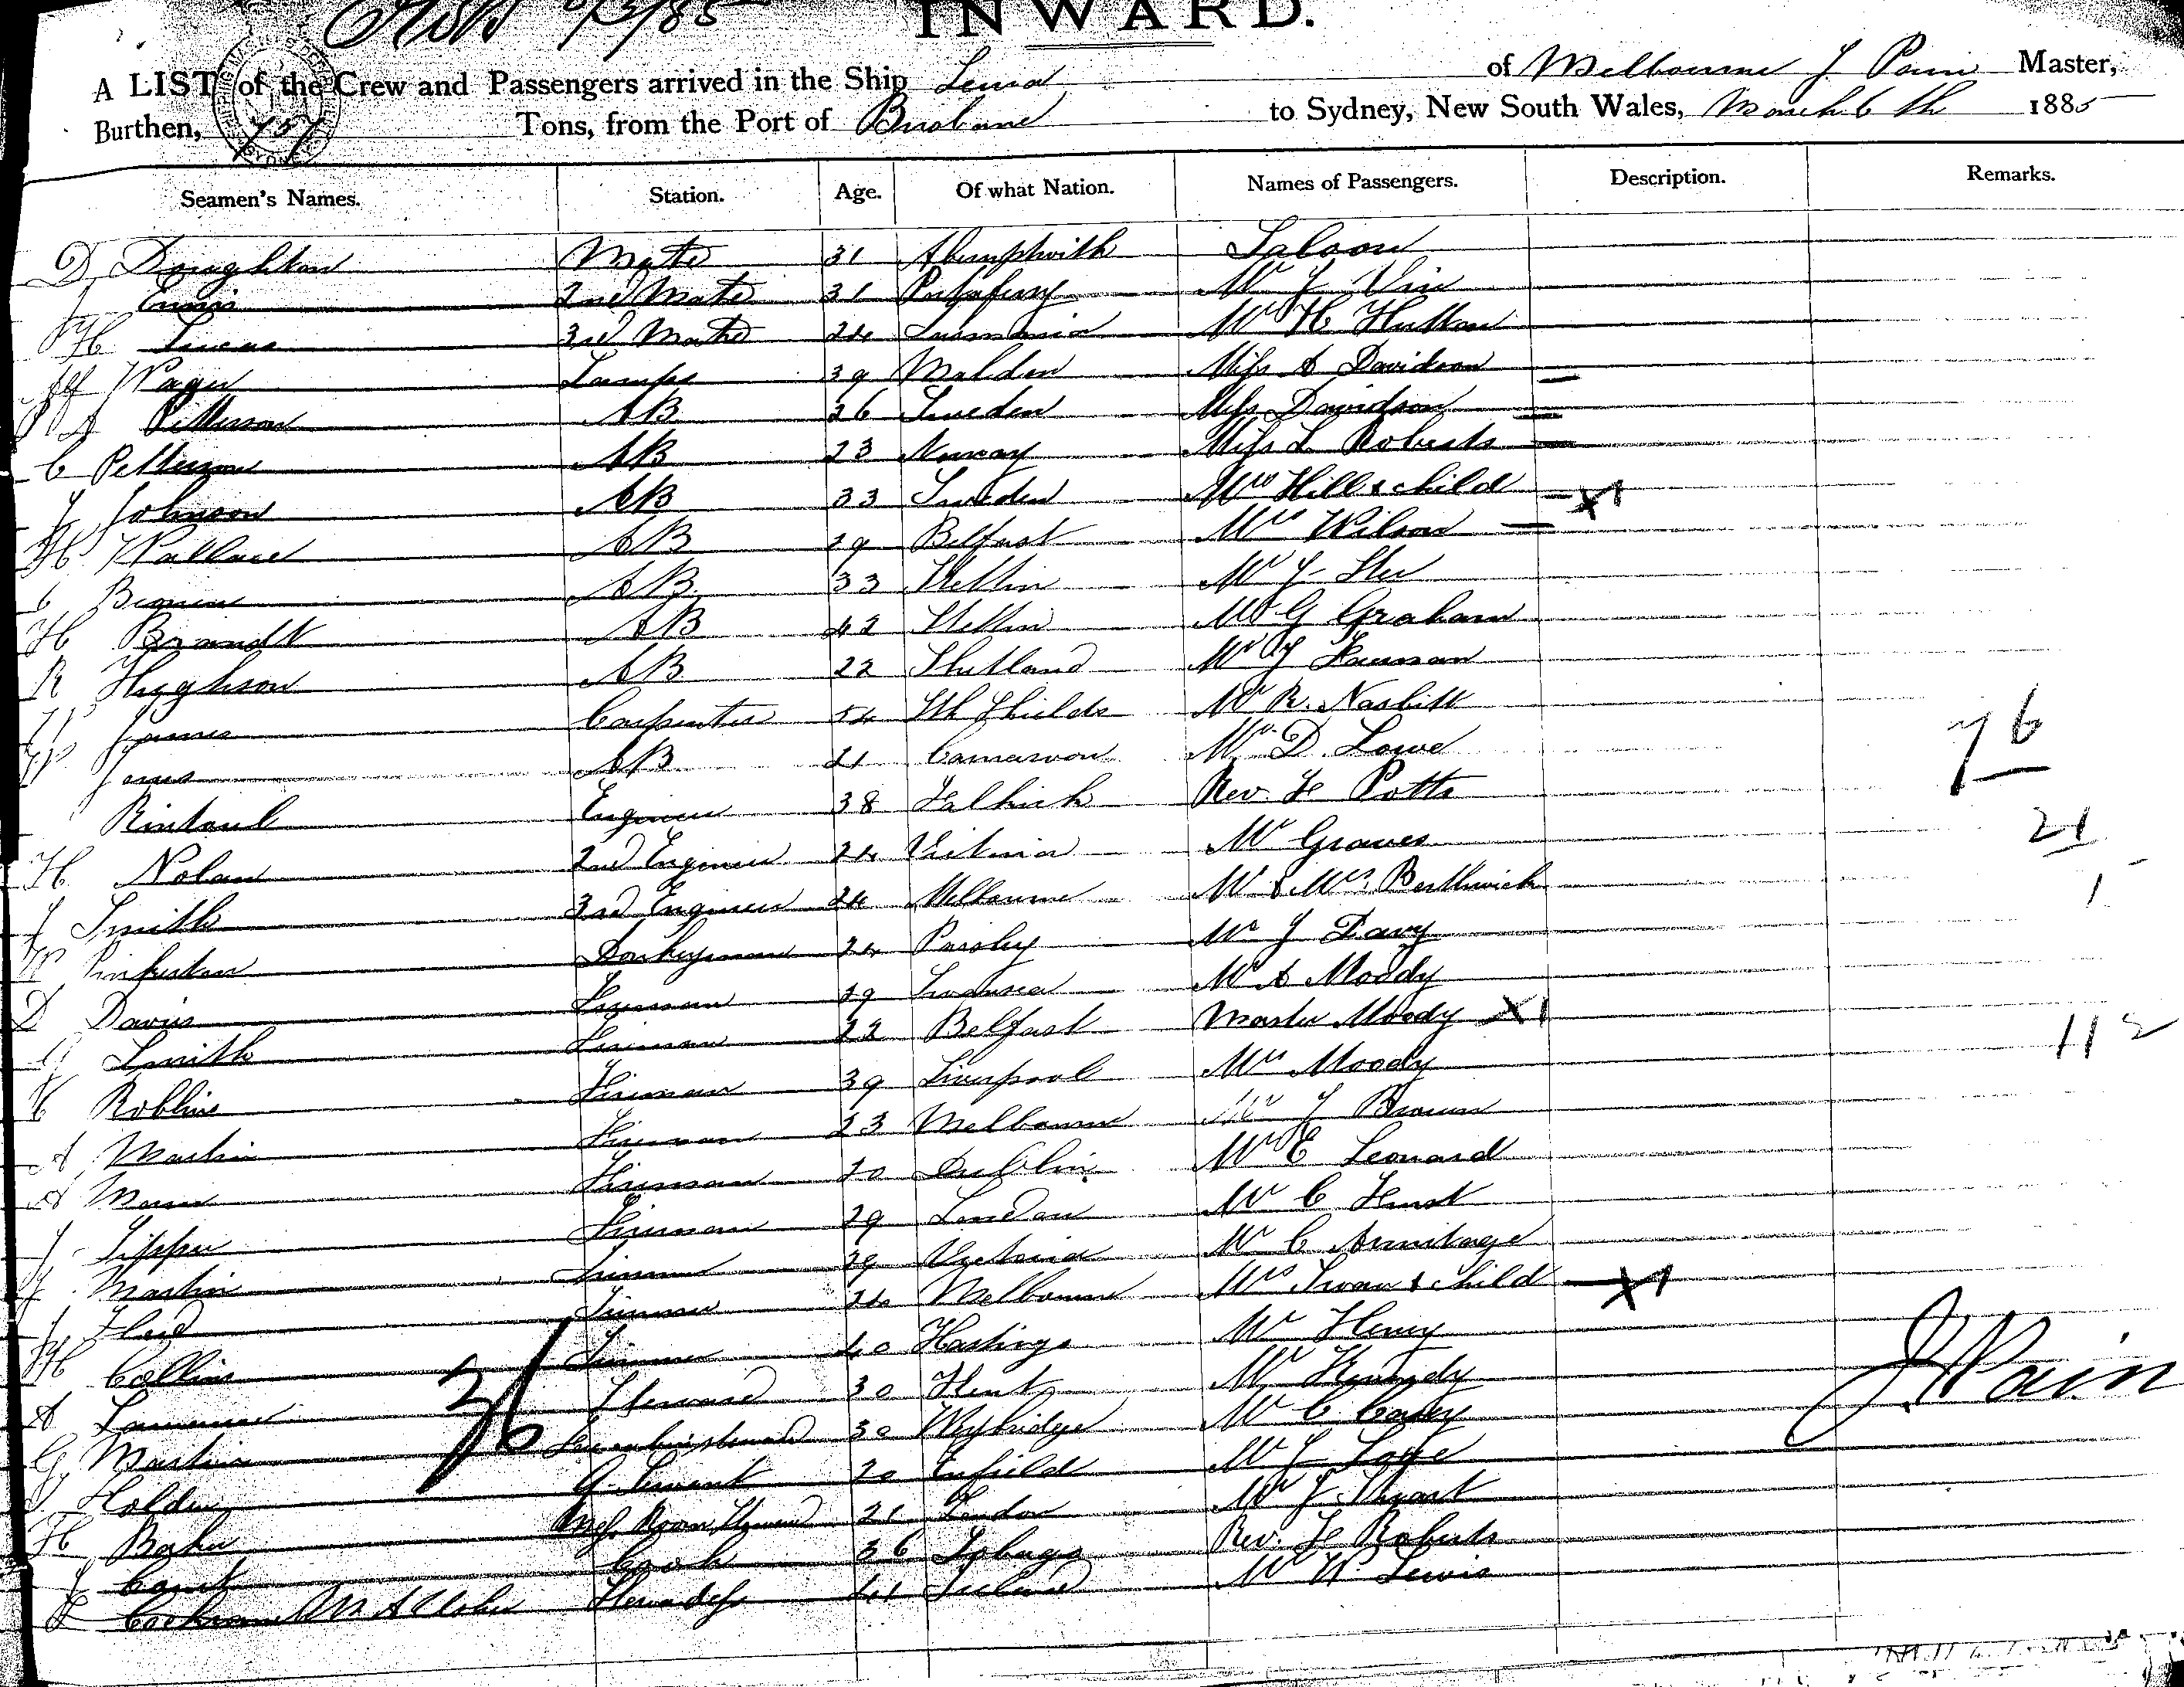 INWARD.
A LIST of the Crew and Passengers arrived in the Ship of Melbourne J Pain Master,
Burthen, 757 Tons, from the Port of Brisbane to Sydney, New South Wales, March 6th 1885
Seamen's Names. Station. Age. Of what Nation. Names of Passengers. Description. Remarks.
D Doughton Mate 31 Saloon
2nd Mate 31 Portaferry Mr J
H Lucas 3rd Mate 24 Tasmania Mr H Hutton
Alf Wager Lamps 39 Maldon Miss A Davidson
P A Pitterson AB 26 Sweden Miss Davidson
C Petterson AB 23 Norway Miss L Roberts
J Johnson AB 33 Sweden Mrs Hill & child X1
H Wallace AB 29 Belfast Mrs Wilson
C AB 33 Stettin Mr J
H Brandt AB 42 Stettin Mr G Graham
R Hughson AB 22 Shetland Mr J
James Carpenter 54 Sth Shields Mr R. Nasbitt
W Jones AB 21 Carnarvon Mr D. Lowe 76
Rintoul Engineer 38 Falkirk Rev. F Potts
H Nolan 2nd Engineer 24 Victoria Mr Graves 21
J Smith 3rd Engineer 24 Melbourne Mr & Mrs Borthwick 1
W Pinkerton Donkeyman 24 Paisley Mr J Davy
D Davies Fireman 29 Swansea Mr A Moody
G Smith Fireman 22 Belfast Master Moody X1
Robbins Fireman 39 Liverpool Mrs Moody 112
A Martin Fireman 23 Melbourne Mr J Brown
A Mann Fireman 20 Dublin Mr E Leonard
J Tipper Fireman 29 London Mr C Hurst
J Martin Trimmer 29 Victoria Mr C Armitage
J Trimmer 24 Melbourne Mrs Swan & child X1
H Collins Trimmer 40 Hastings Mr Henry
A Steward 30 Kent Mr Kennedy J. Pain
G Martin 36 30 Weybridge Mr C
Holden 20 Enfield Mr J
H Baker Steward 21 London Mr J Stuart
J Cook 36 Tobago Rev. F Roberts
Cochrane Stewardess 41 Ireland Mr W. Lewis